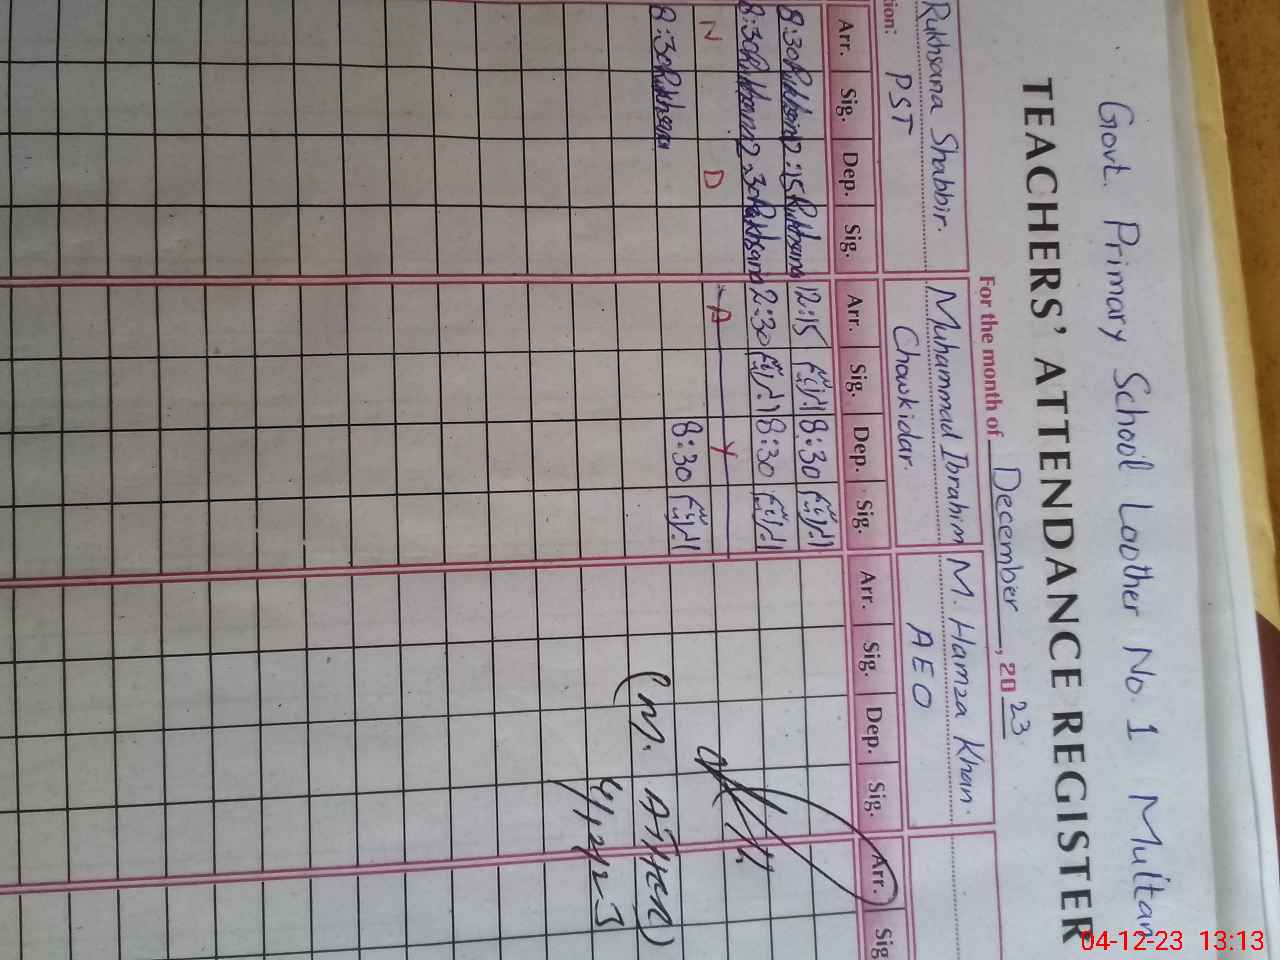 Govt. Primary School Loother No 1 Multan
TEACHERS' ATTENDANCE REGISTER
For the month of December, 2023
Rukhsana Shabbir. Muhammad Ibrahim M. Hamza Khan.
tion: PST Chowkidar. AEO
Arr. Sig. Dep. Sig. Arr. Sig. Dep. Sig. Arr. Sig. Dep. Sig. Arr. Sig
8:30 Rukhsana 12:15 Rukhsana 12:15 8:30
8:30 Rukhsana 2:30 Rukhsana 2:30 8:30
N D A Y
8:30 Rukhsana 8:30
04-12-23 13:13